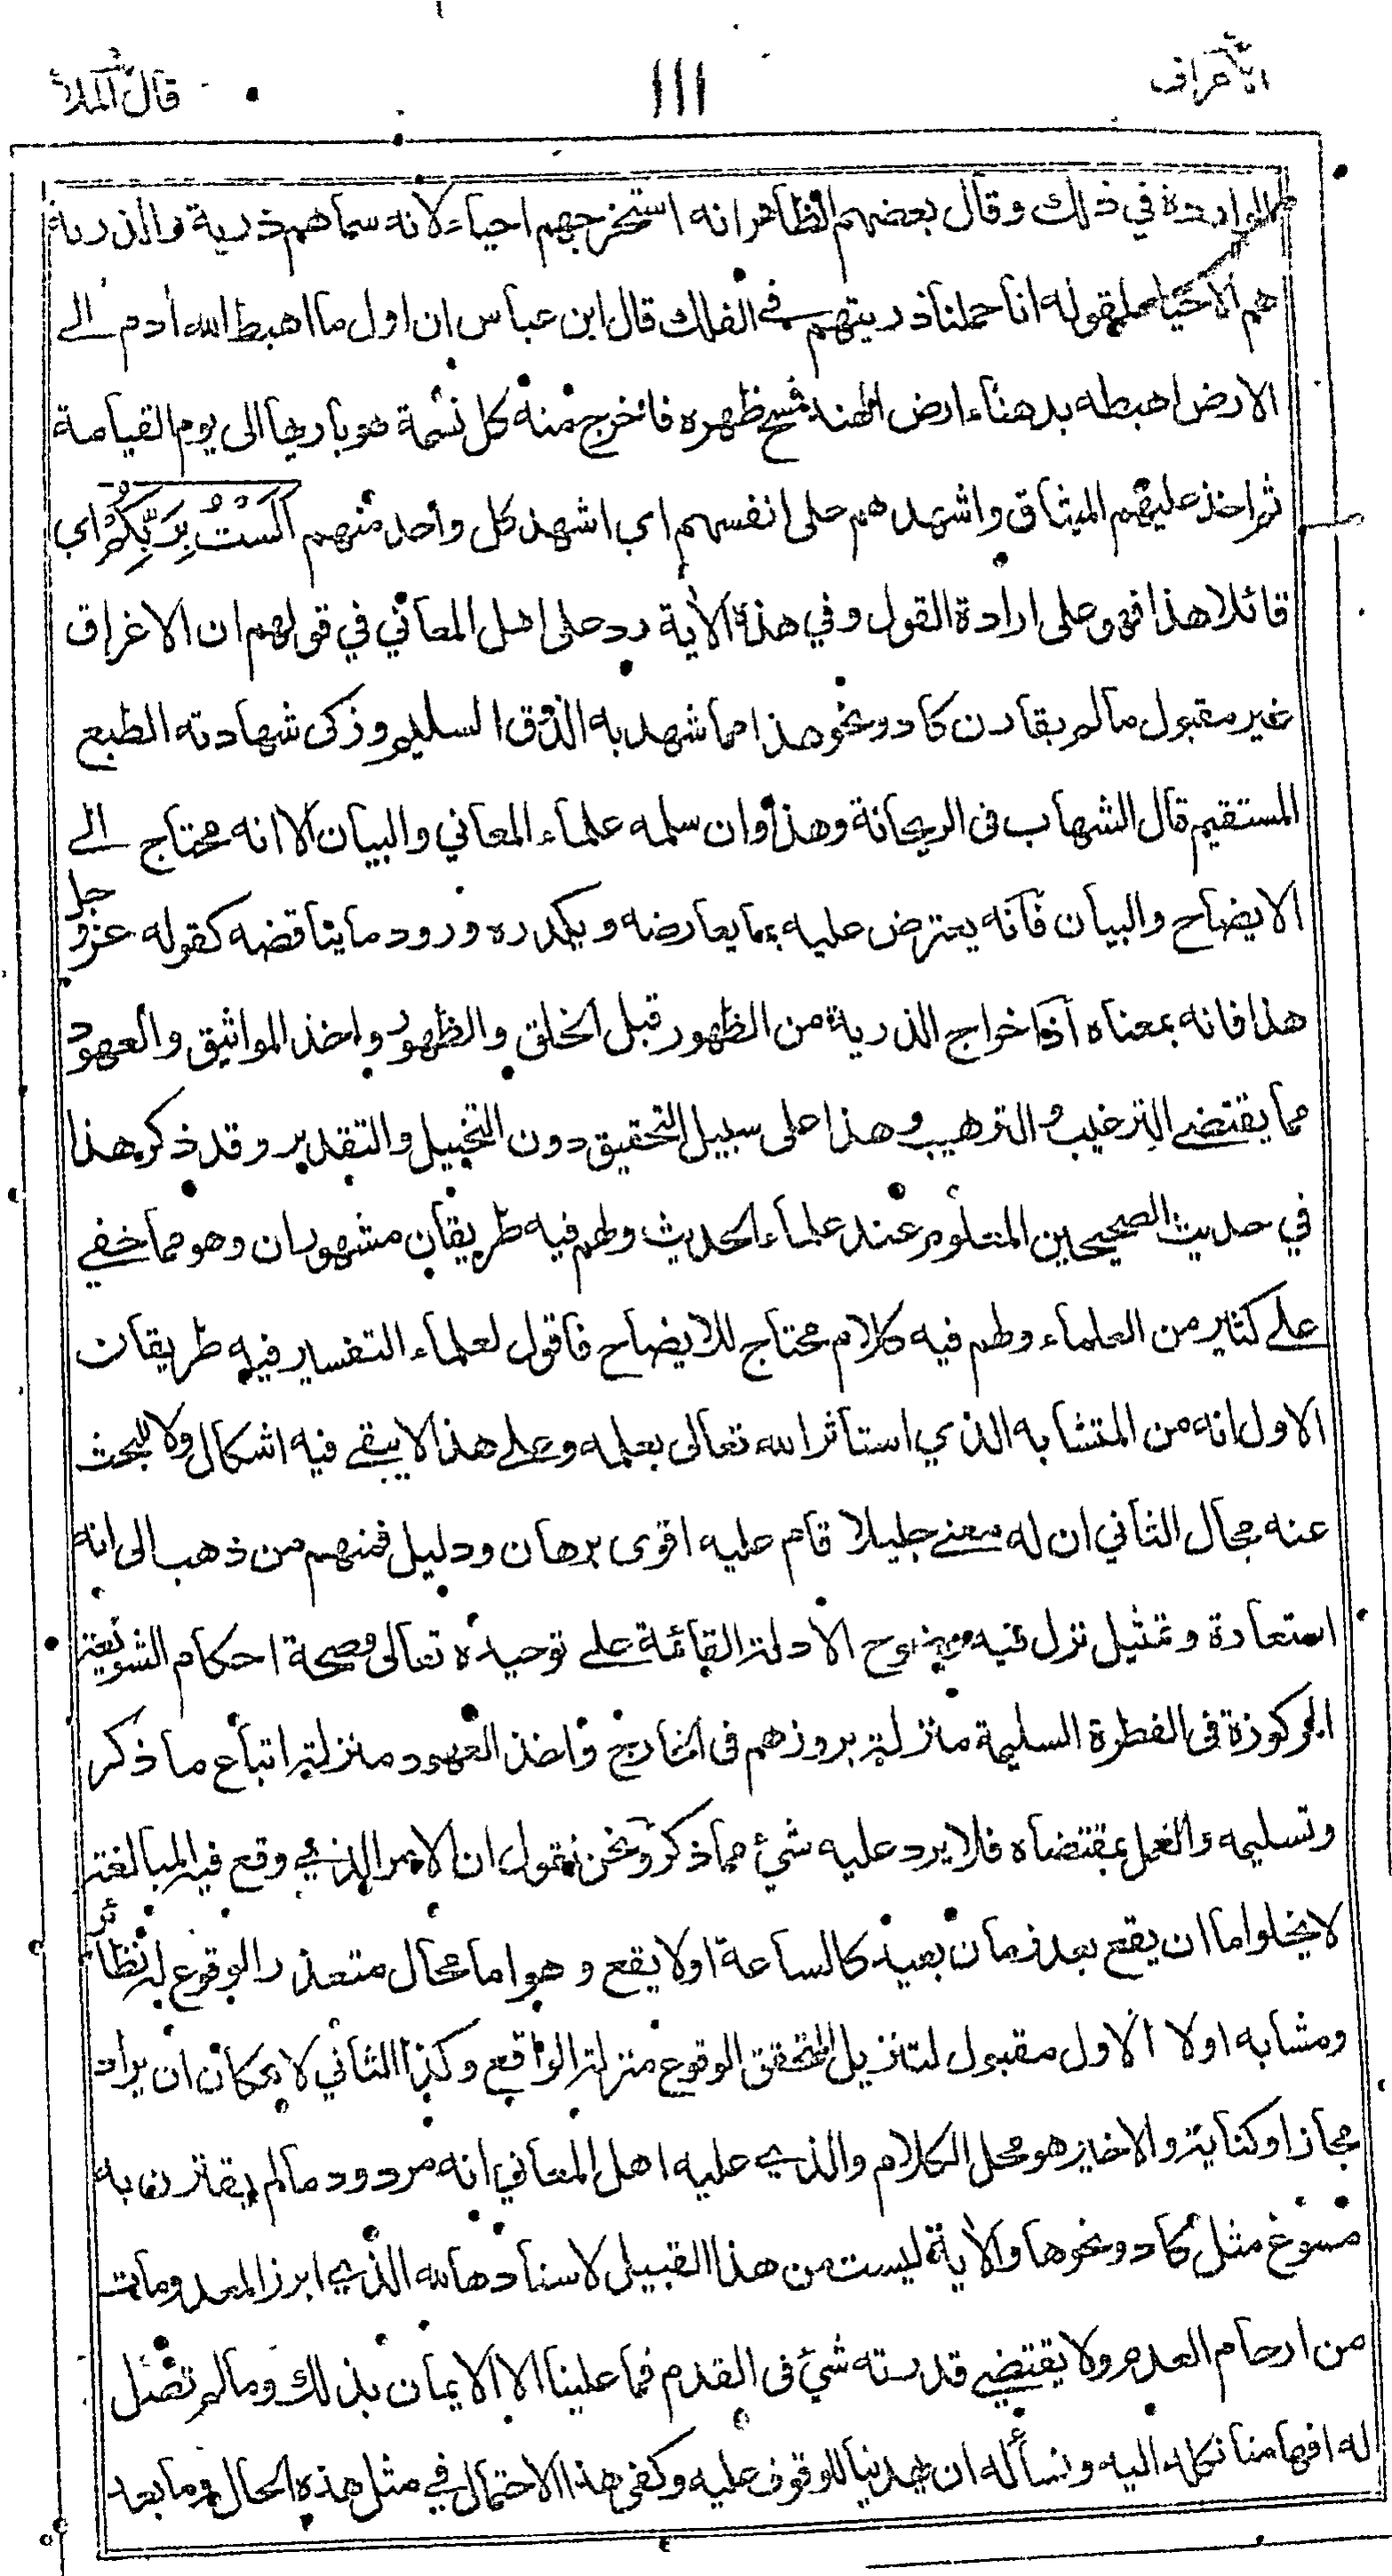 الأعراف
١١١
قال الملأ
الواردة في ذلك وقال بعضهم الظاهر انه استخرجهم احياء لانه سماهم ذرية والذرية
هم الاحياء لقوله انا حملنا ذريتهم في الفلك قال ابن عباس ان اول ما اهبط الله آدم الى
الارض اهبطه بدهناء ارض الهند فمسح ظهره فاخرج منه كل نسمة هو باريها الى يوم القيامة
ثم اخذ عليهم الميثاق واشهدهم على انفسهم اي اشهد كل واحد منهم اَلَسْتُ بِرَبِّكُمْ اي
قائلا هذا فهو على ارادة القول وفي هذه الآية رد على اهل المعاني في قولهم ان الاغراق
غير مقبول ما لم يقارن كاد ونحو هذا مما شهد به الذوق السليم وزكى شهادته الطبع
المستقيم قال الشهاب في الريحانة وهذا وان سلمه علماء المعاني والبيان الا انه محتاج الى
الايضاح والبيان فانه يعترض عليه بما يعارضه ويكدره ورود ما يناقضه كقوله عز وجل
هذا فانه بمعناه اذ اخراج الذرية من الظهور قبل الخلق والظهور واخذ المواثيق والعهود
مما يقتضي الترغيب والترهيب وهذا على سبيل التحقيق دون التخييل والتقدير وقد ذكر هذا
في حديث الصحيحين المتلوم عند علماء الحديث ولهم فيه طريقان مشهوران وهو مما خفي
على كثير من العلماء ولهم فيه كلام محتاج للايضاح فاقول لعلماء التفسير فيه طريقان
الاول انه من المتشابه الذي استأثر الله تعالى بعلمه وعلى هذا لا يبقى فيه اشكال ولا للبحث
عنه مجال الثاني ان له معنى جليلا قام عليه اقوى برهان ودليل فمنهم من ذهب الى انه
استعارة وتمثيل نزل فيه وضوح الادلة القائمة على توحيده تعالى وصحة احكام الشريعة
المركوزة في الفطرة السليمة منزلة بروزهم في الخارج واخذ العهود منزلة اتباع ما ذكر
وتسليمه والعمل بمقتضاه فلا يرد عليه شيء مما ذكر ونحن نقول ان الامر الذي وقع فيه المبالغة
لا يخلوا ما ان يقع بعد زمان بعيد كالساعة اولا يقع وهو اما محال متعذر الوقوع له نظائر
ومشابه اولا الاول مقبول لتنزيل المتحقق الوقوع منزلة الواقع وكذا الثاني لامكان ان يراد
مجازا وكناية والاخير هو محل الكلام والذي عليه اهل المعاني انه مردود ما لم يقترن به
مسوغ مثل كاد ونحوها والآية ليست من هذا القبيل لاسنادها لله الذي ابرز المعدومات
من ارحام العدم ولا يقتضي قدرته شيء في القدم فما علينا الا الايمان بذلك وما لم تصل
له افهامنا نكله اليه ونسأله ان يهدينا للوقوف عليه وكفى هذا الاحتمال في مثل هذه الحال وما بعد